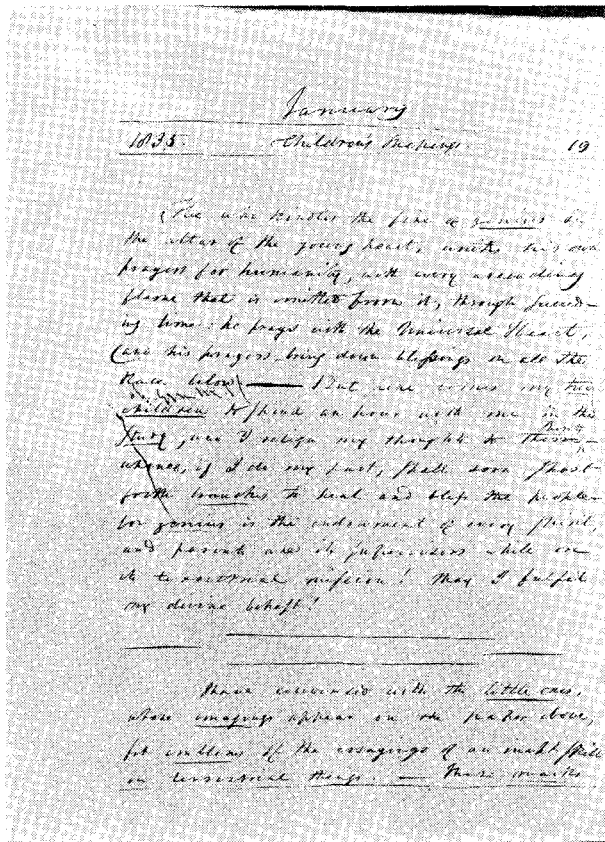 January
1835. Children's 19
He who kindles the fire of genius on
the altar of the young heart, unites his own
prayers for humanity, with every ascending
flame that is emitted from it, through succeed-
ing time: he prays with the Universal Heart,
and his prayers bring down blessings on all the
Race below. — But here comes my two
children to spend an hour with me in the
study, and I resign my thoughts to theirs
whence, if I do my part, shall soon shoot
forth branches to heal and bless the people—
for genius is the endowment of every spirit,
and parents are its supervisors while on
its terrestrial mission! May I fulfil
my divine behest!
Have conversed with the little ones,
whose imagings appear on the paper above,
fit emblems of the essayings of an
on terrestrial things. — These marks